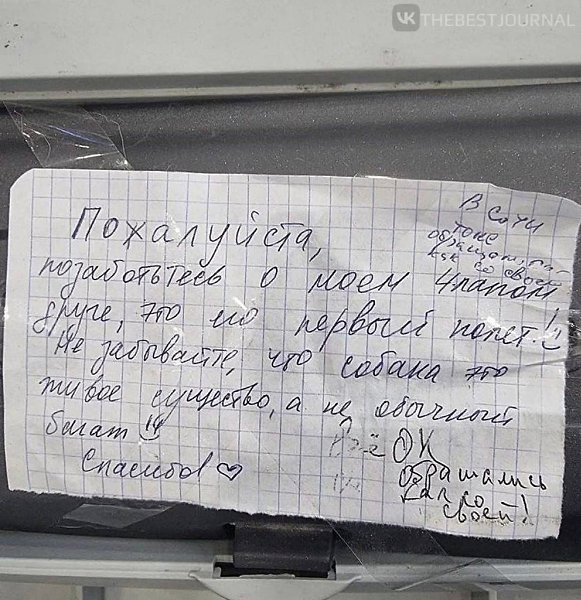 THEBESTJOURNAL
В Сочи
тоже
обращались
как со своей
Пожалуйста,
позаботьтесь о моем 4лапом
друге, это его первый полет!
Не забывайте, что собака это
живое существо, а не обычный
багаж
Спасибо! ♡
Всё ОК
обращались
как со
своей!